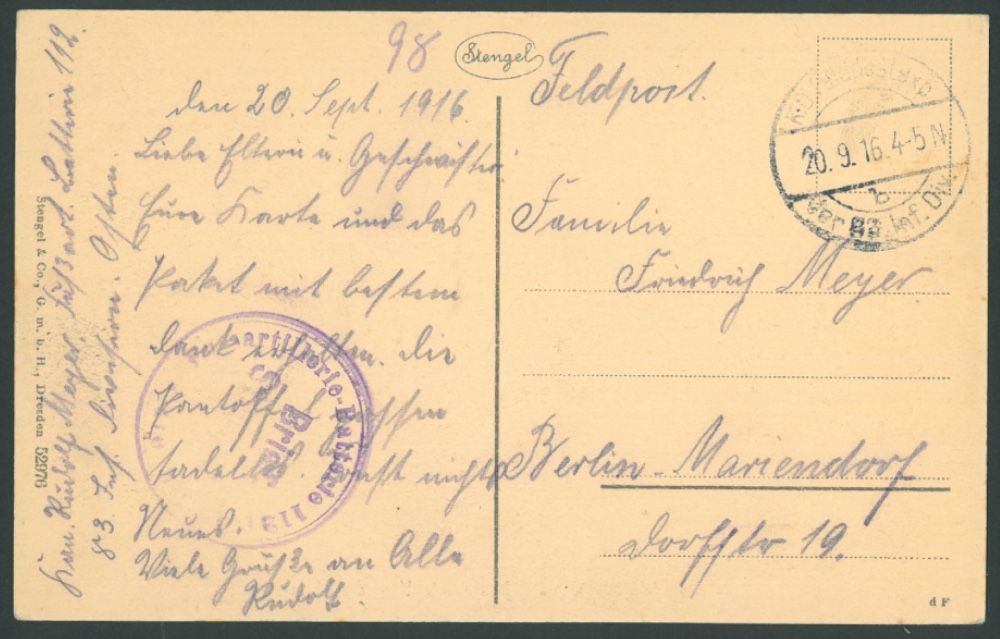 98
Stengel
Feldpost.
K.D. Feldpostexp.
20.9.16.4-5N
b
der 83. Inf. Div.
den 20. Sept. 1916.
Liebe Eltern u. Geschwister
Eure Karte und das
Paket mit bestem
dank erhalten. die
Pantoffel passen
tadellos. Sonst nichts
Neues.
Viele Grüße an Alle
Rudolf.
Familie
Friedrich Meyer
Berlin-Mariendorf
Dorfstr 19.
Kan. Rudolf Meyer, Fußart. Battrie 112.
83. Inf. Division. Osten.
Stengel & Co., G. m. b. H., Dresden 52976
artillerie-Batterie 112
S.
Brief
d F